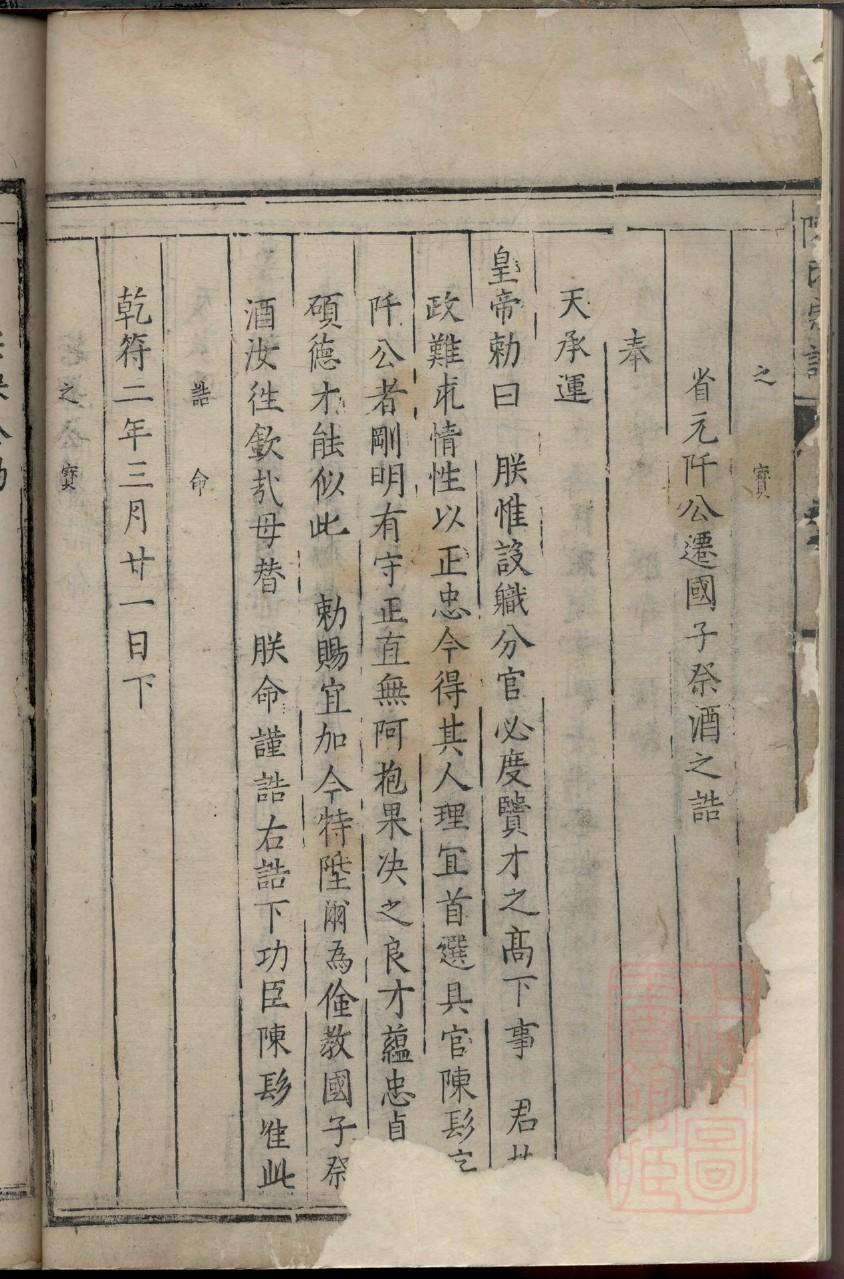 之　寶
省元阡公遷國子祭酒之誥
奉
天承運
皇帝勅曰　朕惟設職分官必度賢才之髙下事　君
政難求情性以正忠今得其人理冝首選具官陳髟
阡公者剛明有守正直無阿抱果决之良才蘊忠貞
碩德才能似此　勅賜宜加今特陞爾為倫教國子祭
酒汝徃欽㢤毋替　朕命謹誥右誥下功臣陳髟准此
誥　命
乾符二年三月廿一日下
之　寶